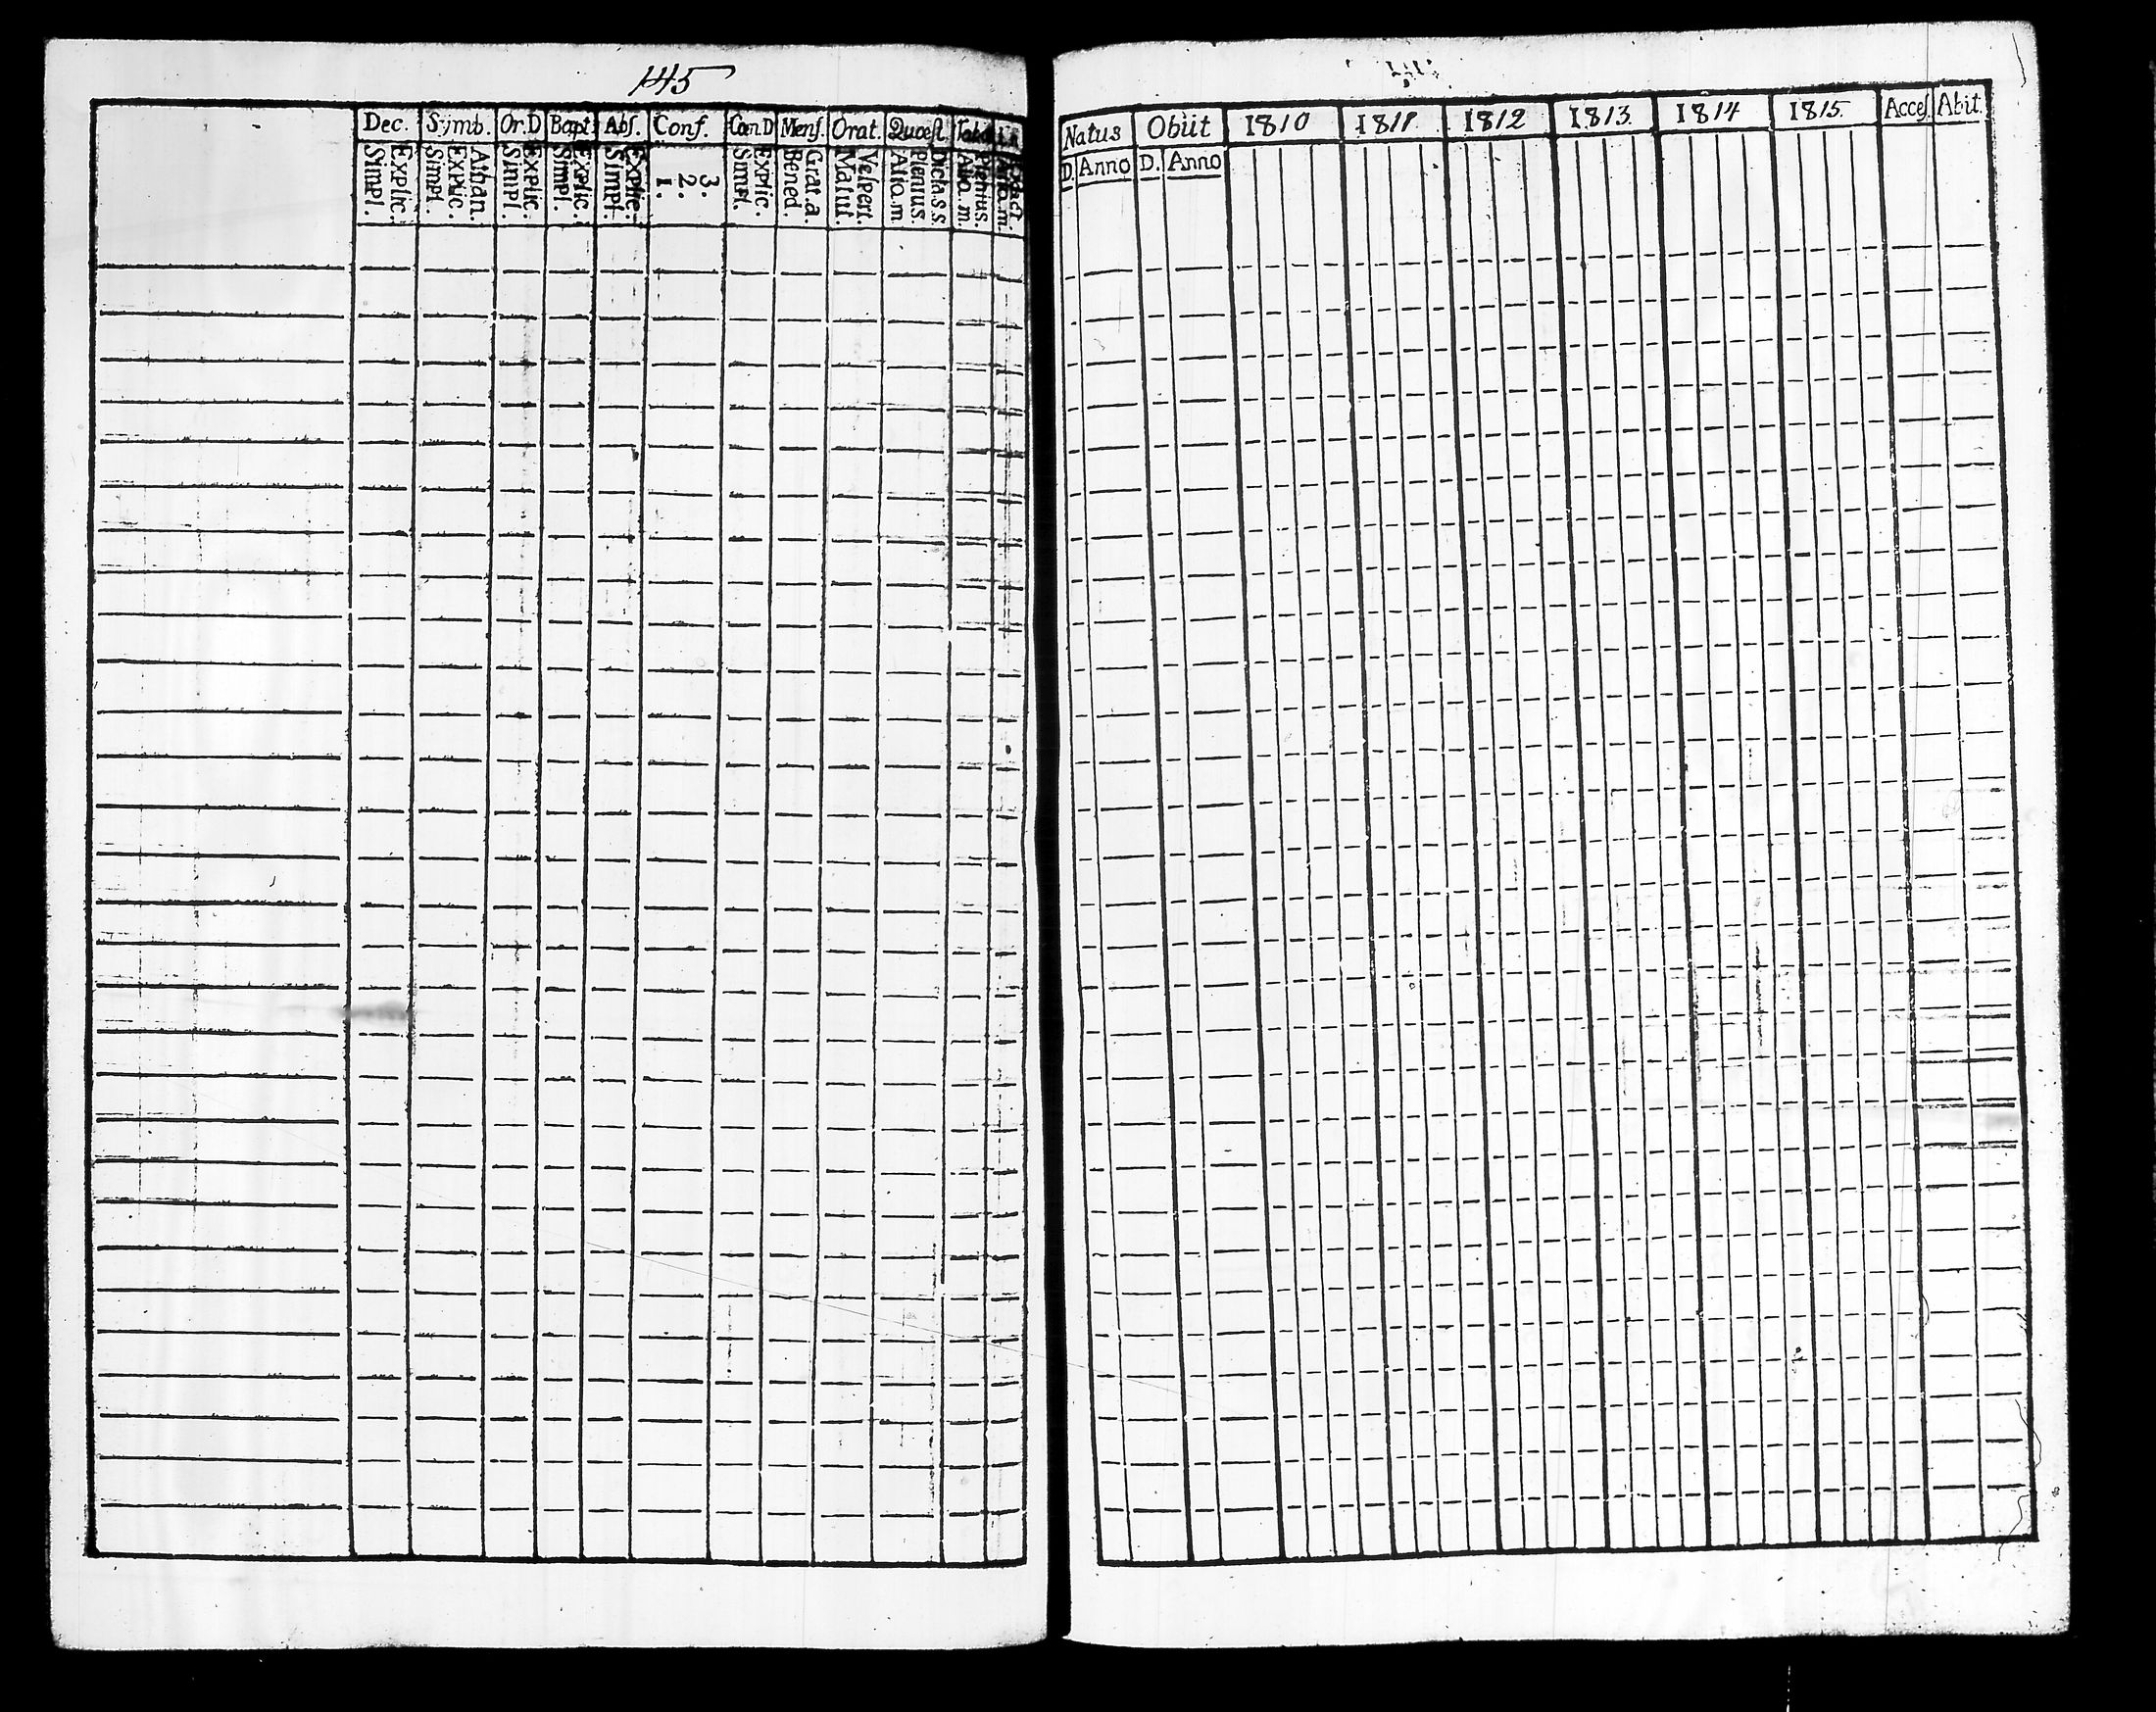 145
Dec. Symb. Or.D Bapt. Abſ. Conf. Cœn.D Menſ. Orat. Quœſt.
Explic. Simpl. Athan. Explic. Simpl. Explic. Simpl. Explic. Simpl. Explic. Simpl. 3. 2. 1. Explic. Simpl. Grat.a. Bened. Veſpert. Matut. Dicta.s.s. Plenius. A𝑙io.m. Plenius. m.
Natus Obiit 1810 1811 1812 1813 1814 1815 Acceſ. Abit.
D. Anno D. Anno